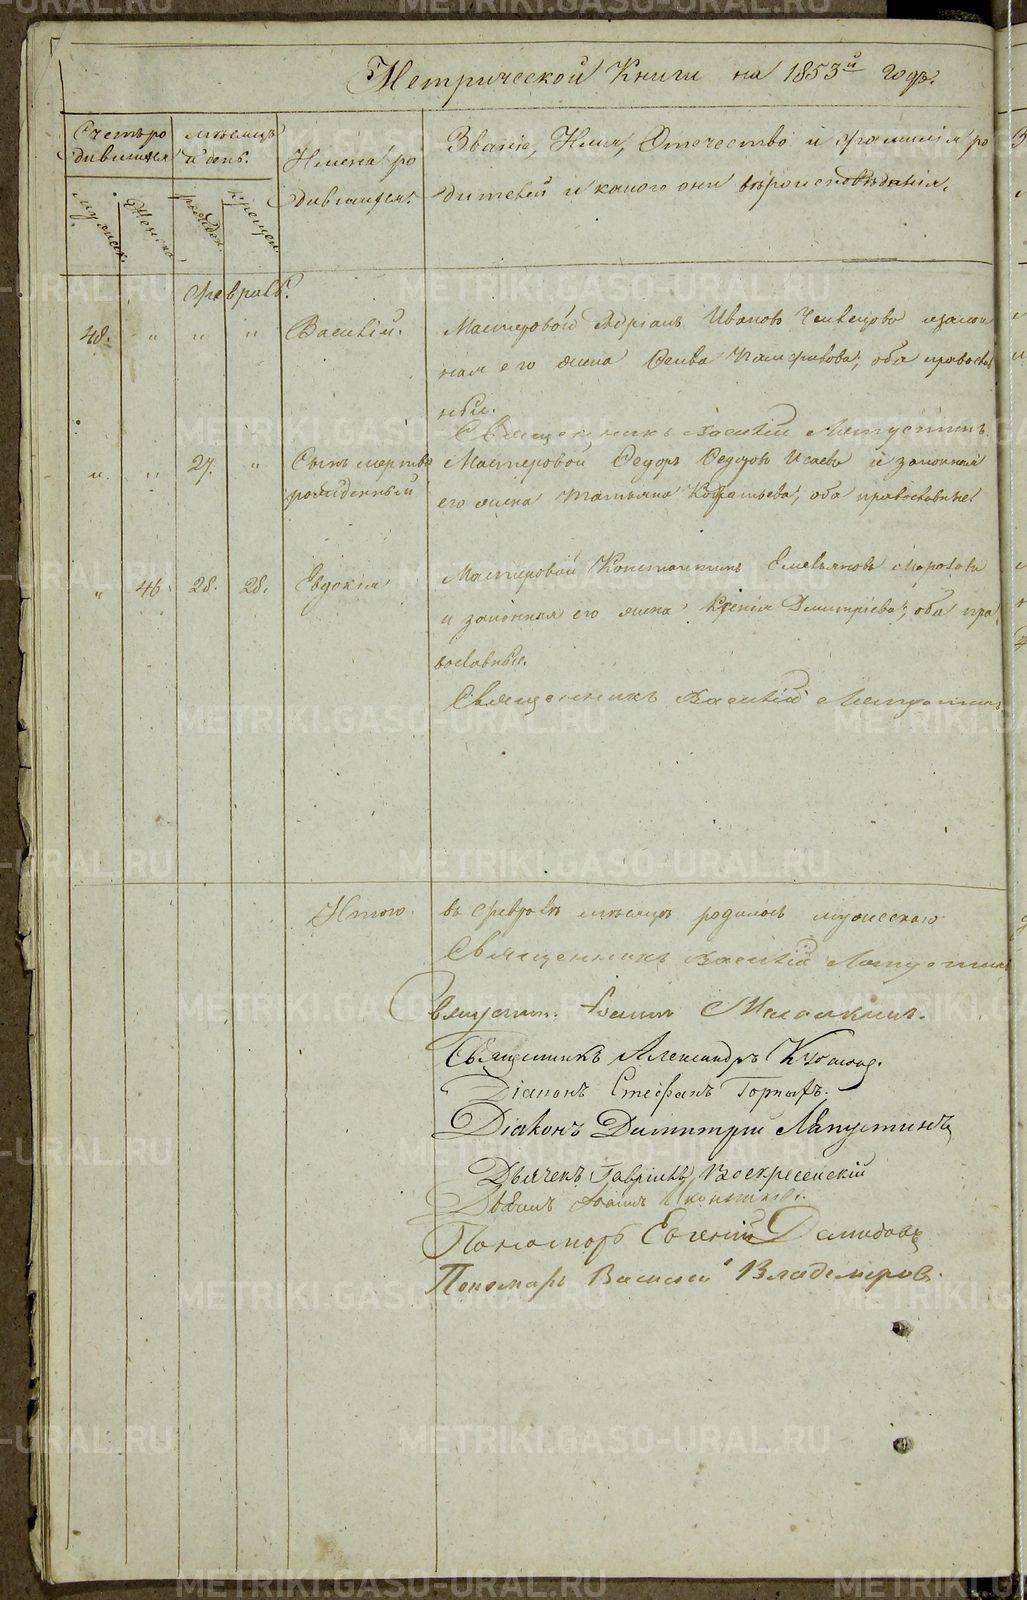 Метрической Книги на 1853й годъ.
Счетъ ро
дившихся
мѣсяцъ
и день.
Имена ро
дившихся.
Званіе, Имя, Отечество и фамилія ро
дителей и какого они вѣроисповѣданія.
мужеск.
Женска
рожден.
крещен.
Февраль.
48. " " " Василій. Мастеровой Адріанъ Ивановъ и закон
ная его жена оба православ
ныи.
Священникъ Василій Лапустинъ
" " 27. " Сынъ мертво Мастеровой Федоръ Федоровъ Исаевъ и законная
рожденный его жена Татьяна оба православные
" 46. 28. 28. Евдокія Мастеровой Константинъ Емельяновъ Морозовъ
и законная его жена Ксенія Дмитріева, оба пра
вославные.
Священникъ Василій Лапустинъ
Итого. въ Февралѣ мѣсяцѣ родилось мужескаго
Священникъ Василій Лапустинъ
Священн. Іоаннъ
Священникъ Александръ
Діаконъ Стефанъ Горныхъ.
Діаконъ Димитрій Лапустинъ
Дьячекъ Гавріилъ Воскресенскій
Іоаннъ
Пономарь Евгеній Демидовъ
Пономарь Василій Владимировъ.
METRIKI.GASO-URAL.RU